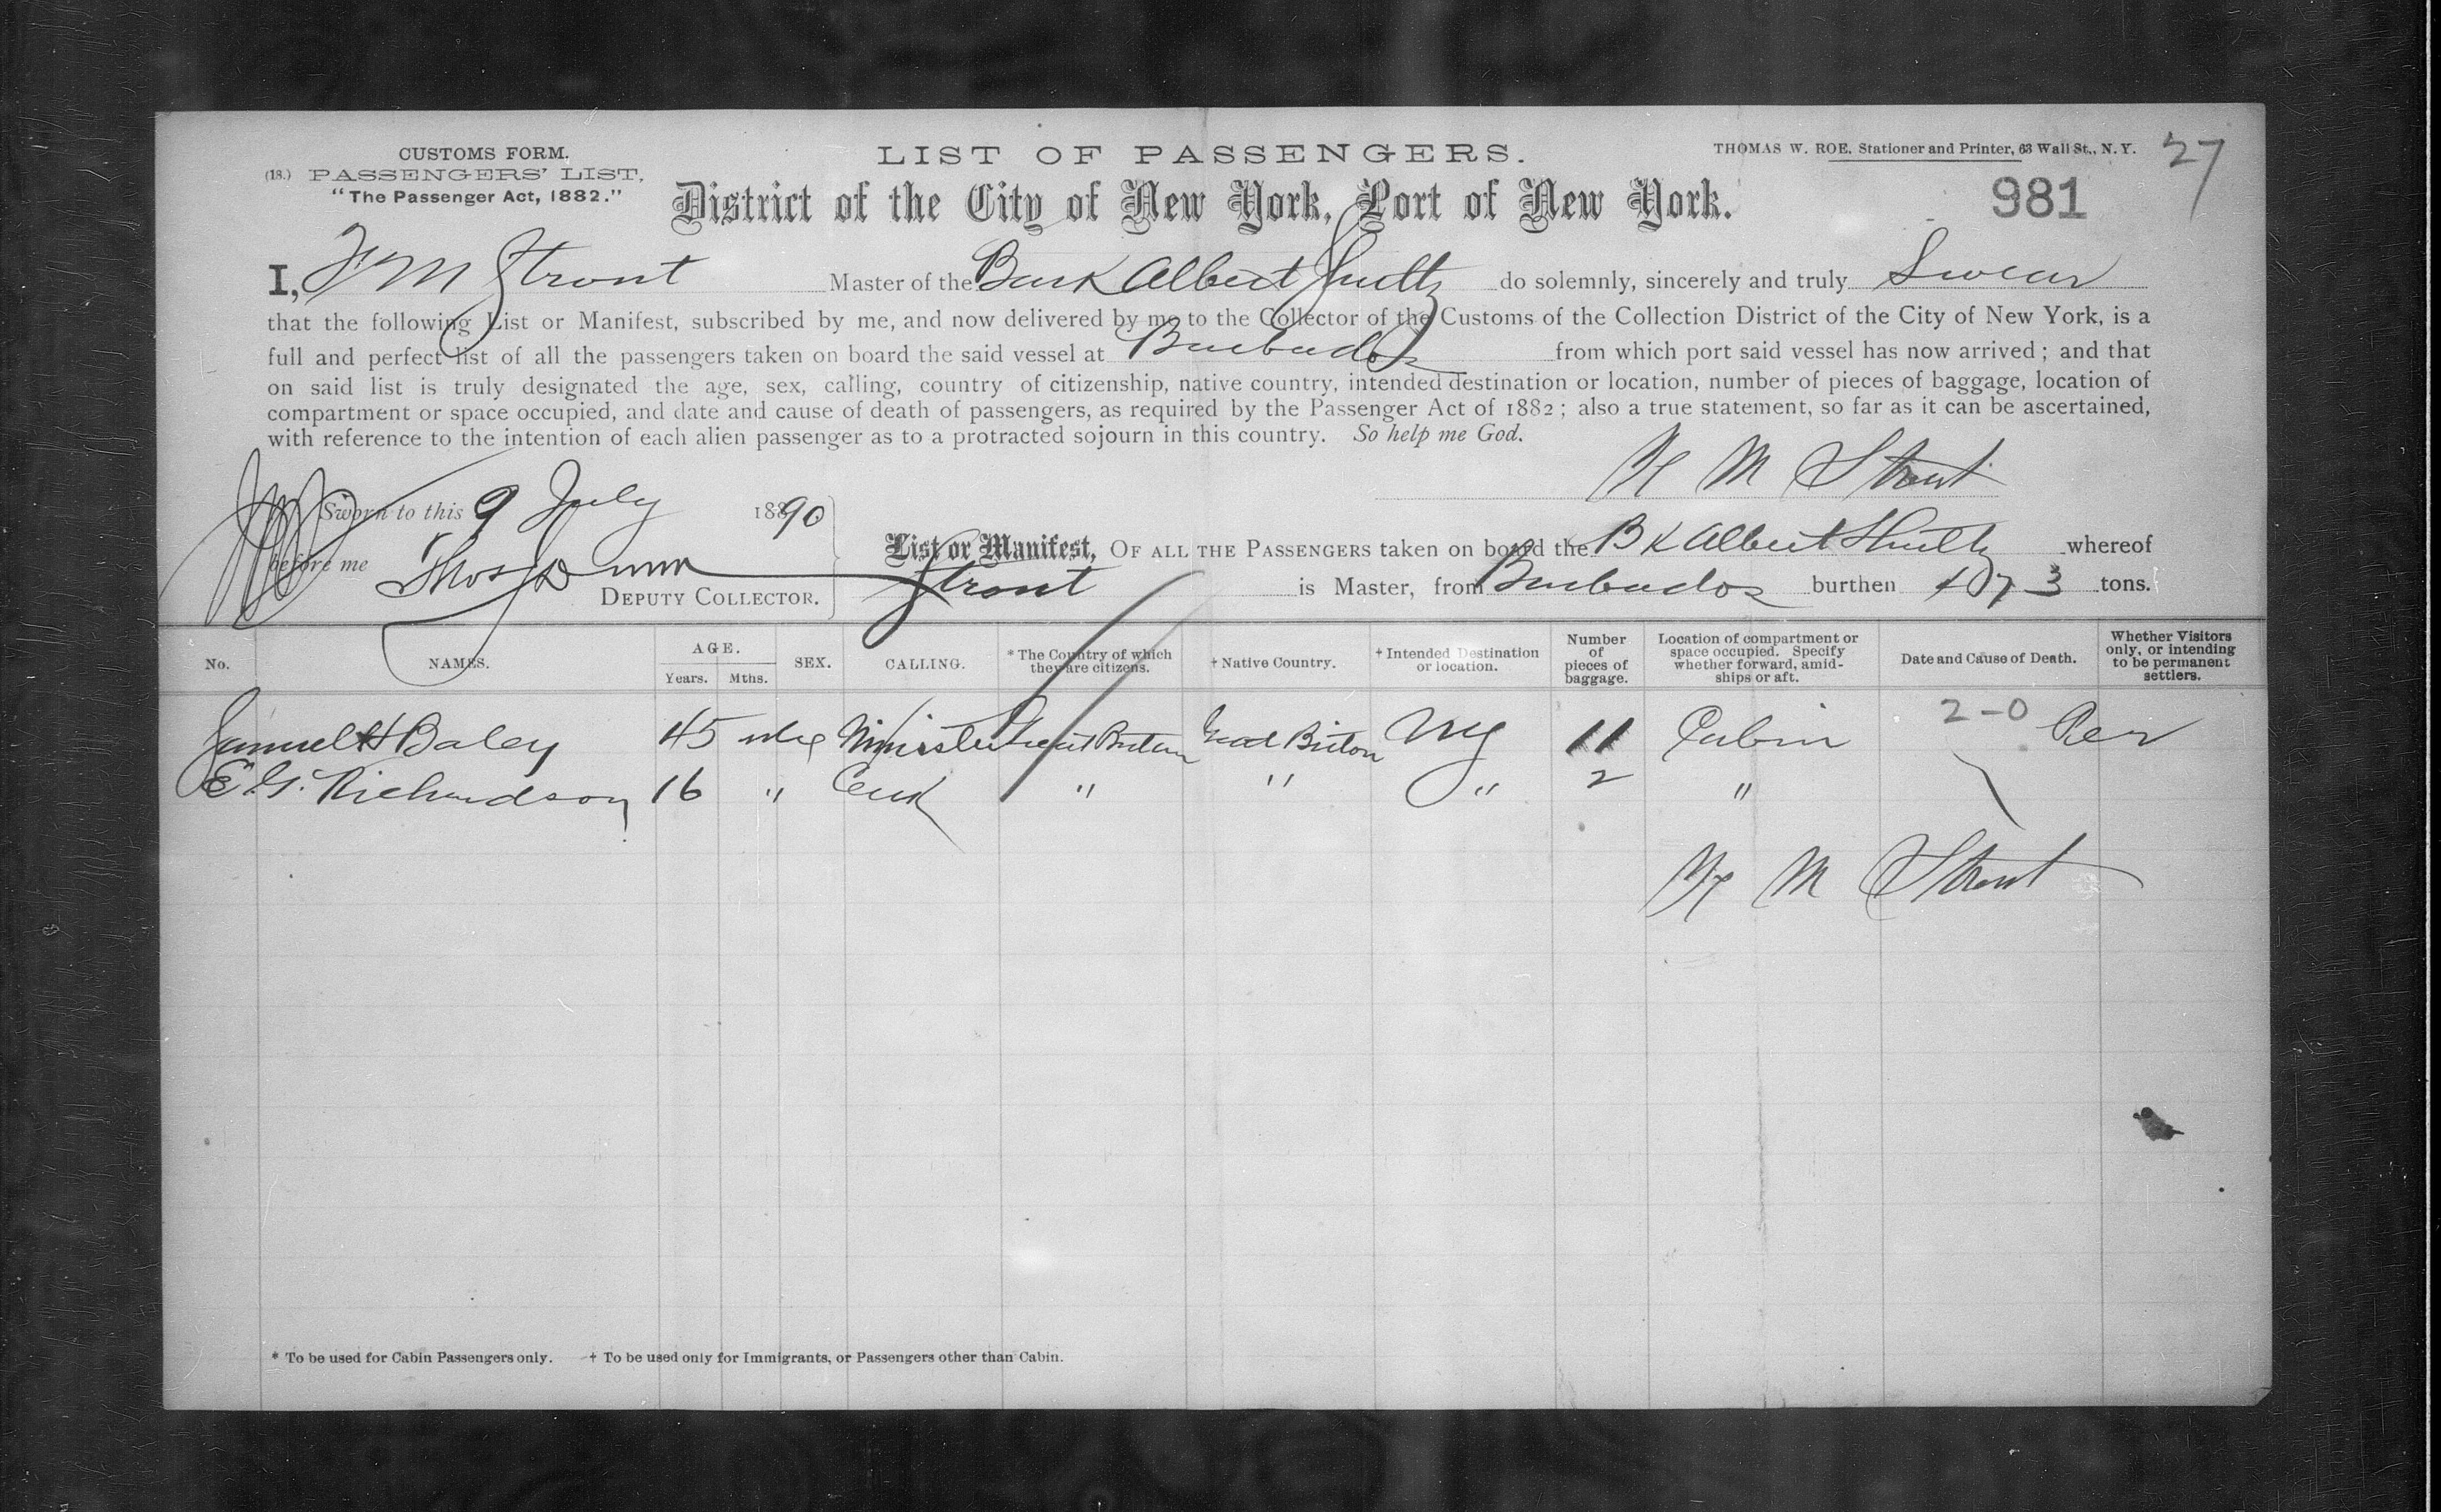 CUSTOMS FORM.
(18.) PASSENGERS' LIST,
"The Passenger Act, 1882."
LIST OF PASSENGERS.
District of the City of New York, Port of New York.
THOMAS W. ROE, Stationer and Printer, 63 Wall St., N. Y.
27
981
I, M Strout Master of the Bark Albert Shultz do solemnly, sincerely and truly Swear
that the following List or Manifest, subscribed by me, and now delivered by me to the Collector of the Customs of the Collection District of the City of New York, is a
full and perfect list of all the passengers taken on board the said vessel at Barbados from which port said vessel has now arrived; and that
on said list is truly designated the age, sex, calling, country of citizenship, native country, intended destination or location, number of pieces of baggage, location of
compartment or space occupied, and date and cause of death of passengers, as required by the Passenger Act of 1882; also a true statement, so far as it can be ascertained,
with reference to the intention of each alien passenger as to a protracted sojourn in this country. So help me God.
M Strout
Sworn to this 9 July 1890
before me Thos Dunn
DEPUTY COLLECTOR.
List or Manifest, OF ALL THE PASSENGERS taken on board the Bk Albert Shultz whereof
Strout is Master, from Barbados burthen 473 tons.
No. NAMES. AGE. Years. Mths. SEX. CALLING. * The Country of which they are citizens. † Native Country. † Intended Destination or location. Number of pieces of baggage. Location of compartment or space occupied. Specify whether forward, amidships or aft. Date and Cause of Death. Whether Visitors only, or intending to be permanent settlers.
2-0
Samuel H Baley 45 male Minister Great Britain Great Briton NY 11 Cabin Per
E. G. Richardson 16 " " " " 2 "
M Strout
* To be used for Cabin Passengers only. † To be used only for Immigrants, or Passengers other than Cabin.